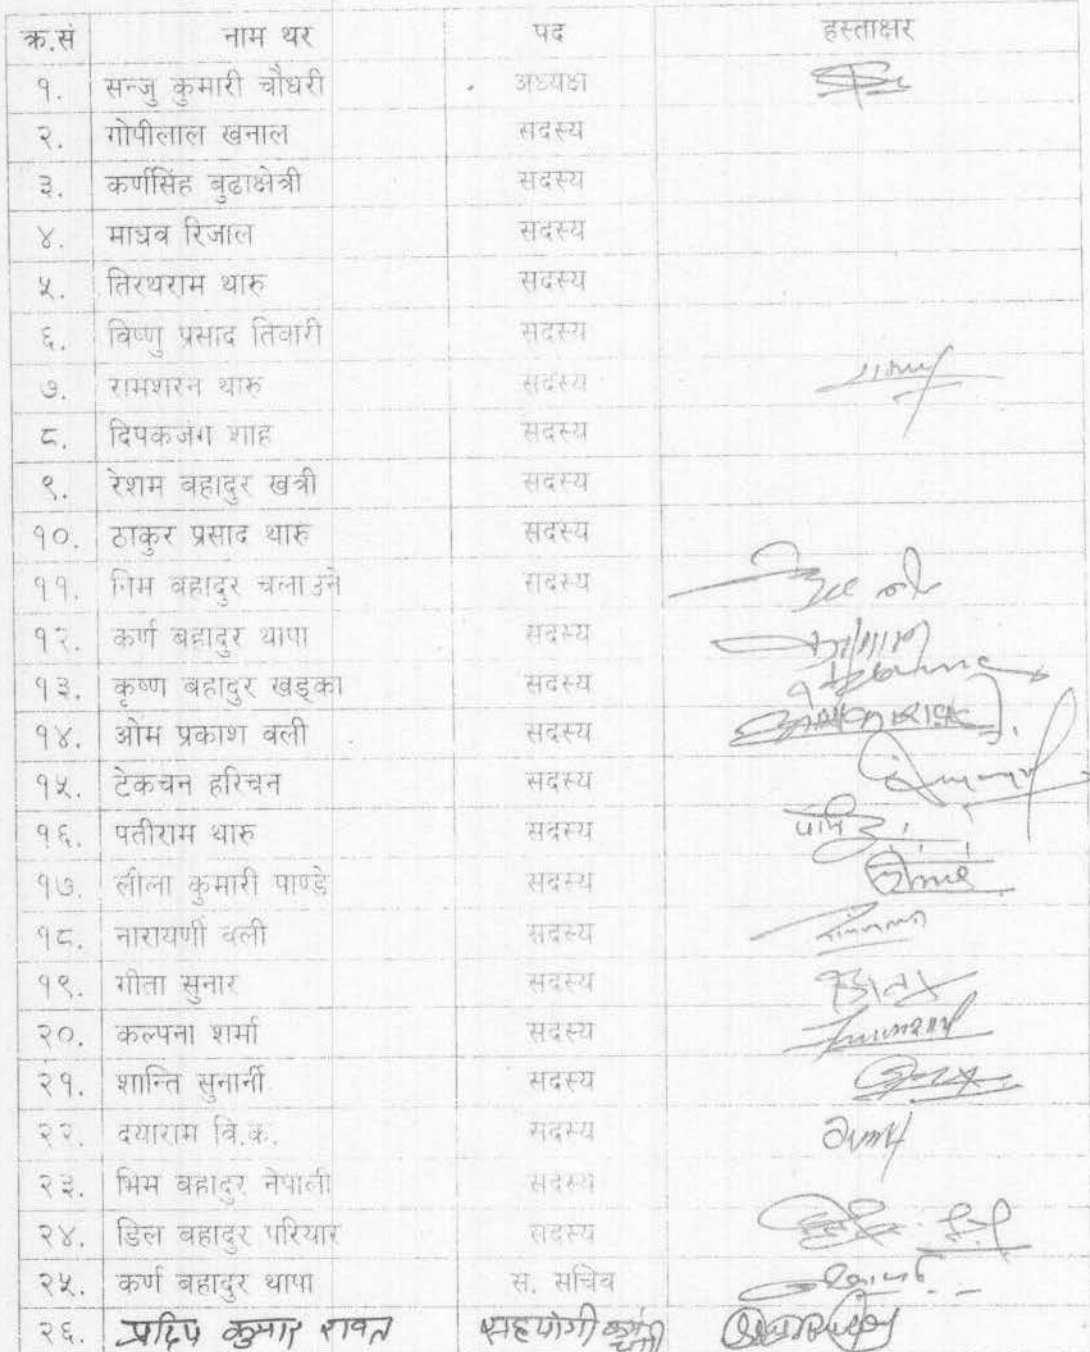 क्र.सं नाम थर पद हस्ताक्षर
१. सन्जु कुमारी चौधरी अध्यक्ष
२. गोपीलाल खनाल सदस्य
३. कर्णसिंह बुढाक्षेत्री सदस्य
४. माधव रिजाल सदस्य
५. तिरथराम थारु सदस्य
६. विष्णु प्रसाद तिवारी सदस्य
७. रामशरन थारु सदस्य
८. दिपकजंग शाह सदस्य
९. रेशम बहादुर खत्री सदस्य
१०. ठाकुर प्रसाद थारु सदस्य
११. निम बहादुर चलाउने सदस्य
१२. कर्ण बहादुर थापा सदस्य
१३. कृष्ण बहादुर खड्का सदस्य
१४. ओम प्रकाश वली सदस्य
१५. टेकचन हरिचन सदस्य
१६. पतीराम थारु सदस्य
१७. लीला कुमारी पाण्डे सदस्य
१८. नारायणी वली सदस्य
१९. गीता सुनार सदस्य
२०. कल्पना शर्मा सदस्य
२१. शान्ति सुनार्नी सदस्य
२२. दयाराम वि.क. सदस्य
२३. भिम बहादुर नेपाली सदस्य
२४. डिल बहादुर परियार सदस्य
२५. कर्ण बहादुर थापा स. सचिव
२६. प्रदिप कुमार रावत सहयोगी